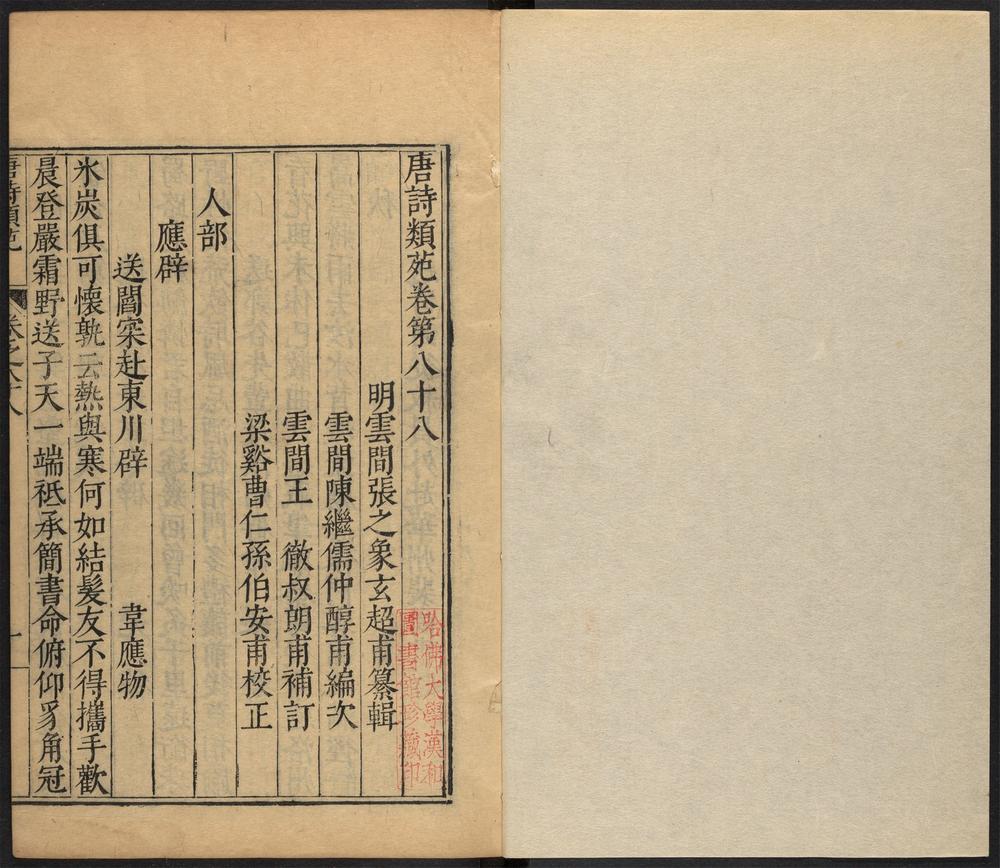 唐詩類苑卷第八十八
明雲間張之象玄超甫纂輯
雲間陳繼儒仲醇甫編次
雲間王　徹叔朗甫補訂
梁谿曹仁孫伯安甫校正
人部
應辟
送閻寀赴東川辟　韋應物
氷炭俱可懷孰云熱與寒何如結髮友不得攜手歡
晨登嚴霜野送子天一端袛承簡書命俯仰豸角冠
唐詩類苑　卷之八十八　一
哈佛大學漢和
圖書館珍藏印